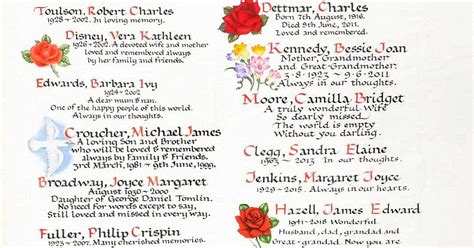 Toulson, Robert Charles
1928 ~ 2002. In loving memory.
Disney, Vera Kathleen
1926 ~ 2002. A devoted wife and mother
loved and remembered always
by her family and friends.
Edwards, Barbara Ivy
1924 ~ 2002
A dear mum & nan.
One of the happy people of this world.
Always in our thoughts.
Croucher, Michael James
A loving Son and Brother
who will be loved & remembered
always by Family & Friends.
3rd March, 1981 ~ 9th June, 1999.
Broadway, Joyce Margaret
August 1930 ~ 2000
Daughter of George Daniel Tomlin.
No need for words except to say,
Still loved and missed in every way.
Fuller, Philip Crispin
1923 ~ 2001. Many cherished memories.
Dettmar, Charles
Born 7th August, 1916.
Died 9th June, 2011.
Loved and remembered always.
Kennedy, Bessie Joan
Mother, Grandmother
and Great-Grandmother.
3 ~ 8 ~ 1923 ~ 9 ~ 6 ~ 2011
Always in our thoughts.
Moore, Camilla Bridget
A truly wonderful Wife
So dearly missed
The world is empty
Without you darling.
Clegg, Sandra Elaine
1963 ~ 2013 In our thoughts.
Jenkins, Margaret Joyce
1929 ~ 2015. Always in our thoughts.
Hazell, James Edward
1941 ~ 2018 Wonderful
Husband, dad, grandad and
great-grandad. Loved &